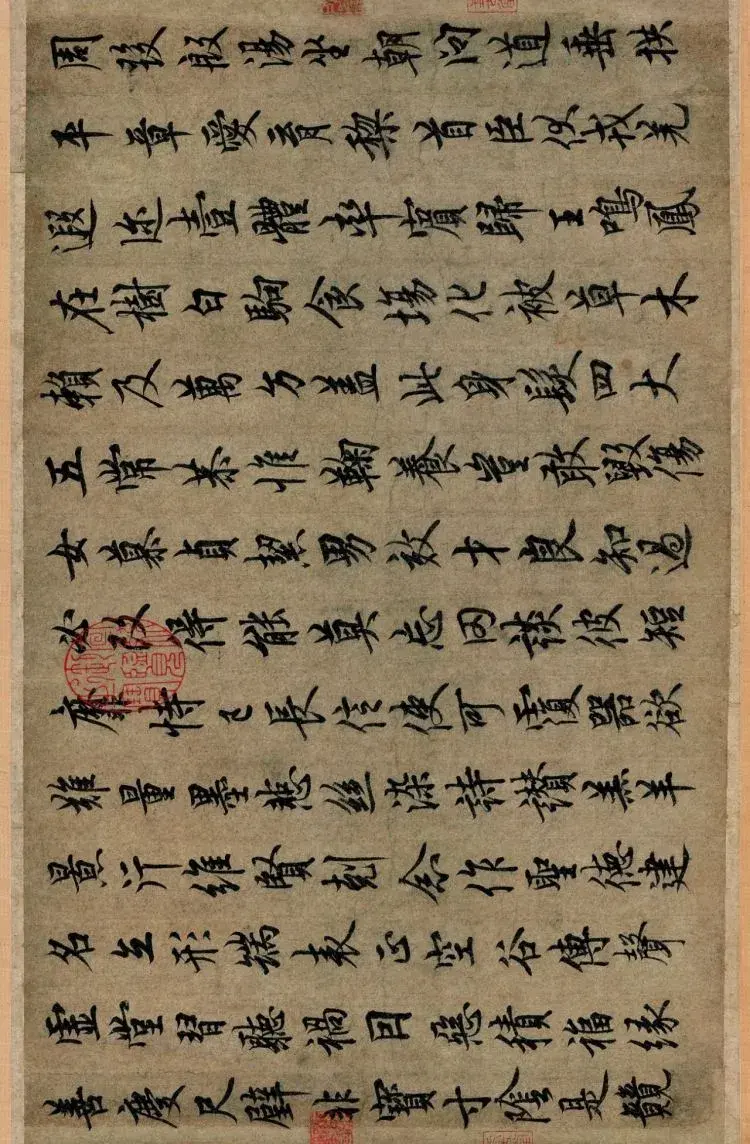 周發殷湯坐朝問道垂拱
平章愛育黎首臣伏戎羌
遐迩壹體率賓歸王鳴鳳
在樹白駒食場化被草木
賴及萬方盖此身髮四大
五常恭惟鞠養豈敢毀傷
女慕貞絜男效才良知過
必改得能莫忘罔談彼短
靡恃己長信使可覆器欲
難量墨悲絲染詩讃羔羊
景行維賢剋念作聖德建
名立形端表正空谷傳聲
虛堂習聽禍因惡積福緣
善慶尺璧非寶寸陰是競